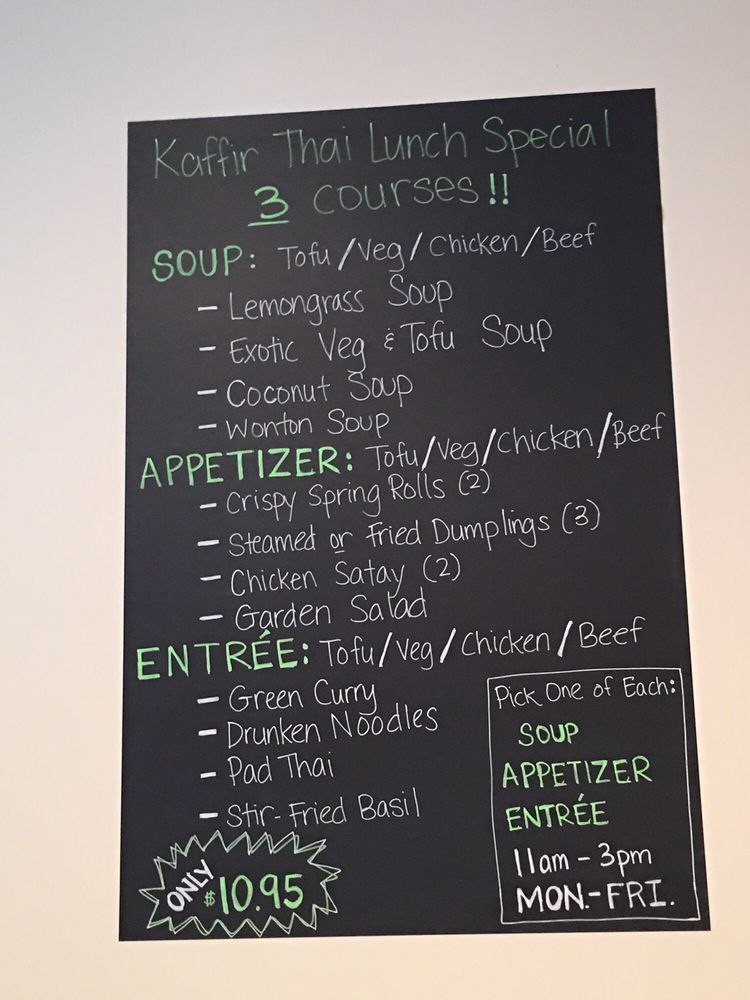 Kaffir Thai Lunch Special
3 Courses!!
SOUP: Tofu/Veg/Chicken/Beef
- Lemongrass Soup
- Exotic Veg & Tofu Soup
- Coconut Soup
- Wonton Soup
APPETIZER: Tofu/Veg/Chicken/Beef
- Crispy Spring Rolls (2)
- Steamed or Fried Dumplings (3)
- Chicken Satay (2)
- Garden Salad
ENTRÉE: Tofu/Veg/Chicken/Beef
- Green Curry
- Drunken Noodles
- Pad Thai
- Stir-Fried Basil
ONLY $10.95
Pick One of Each:
SOUP
APPETIZER
ENTRÉE
11am - 3pm
MON.-FRI.